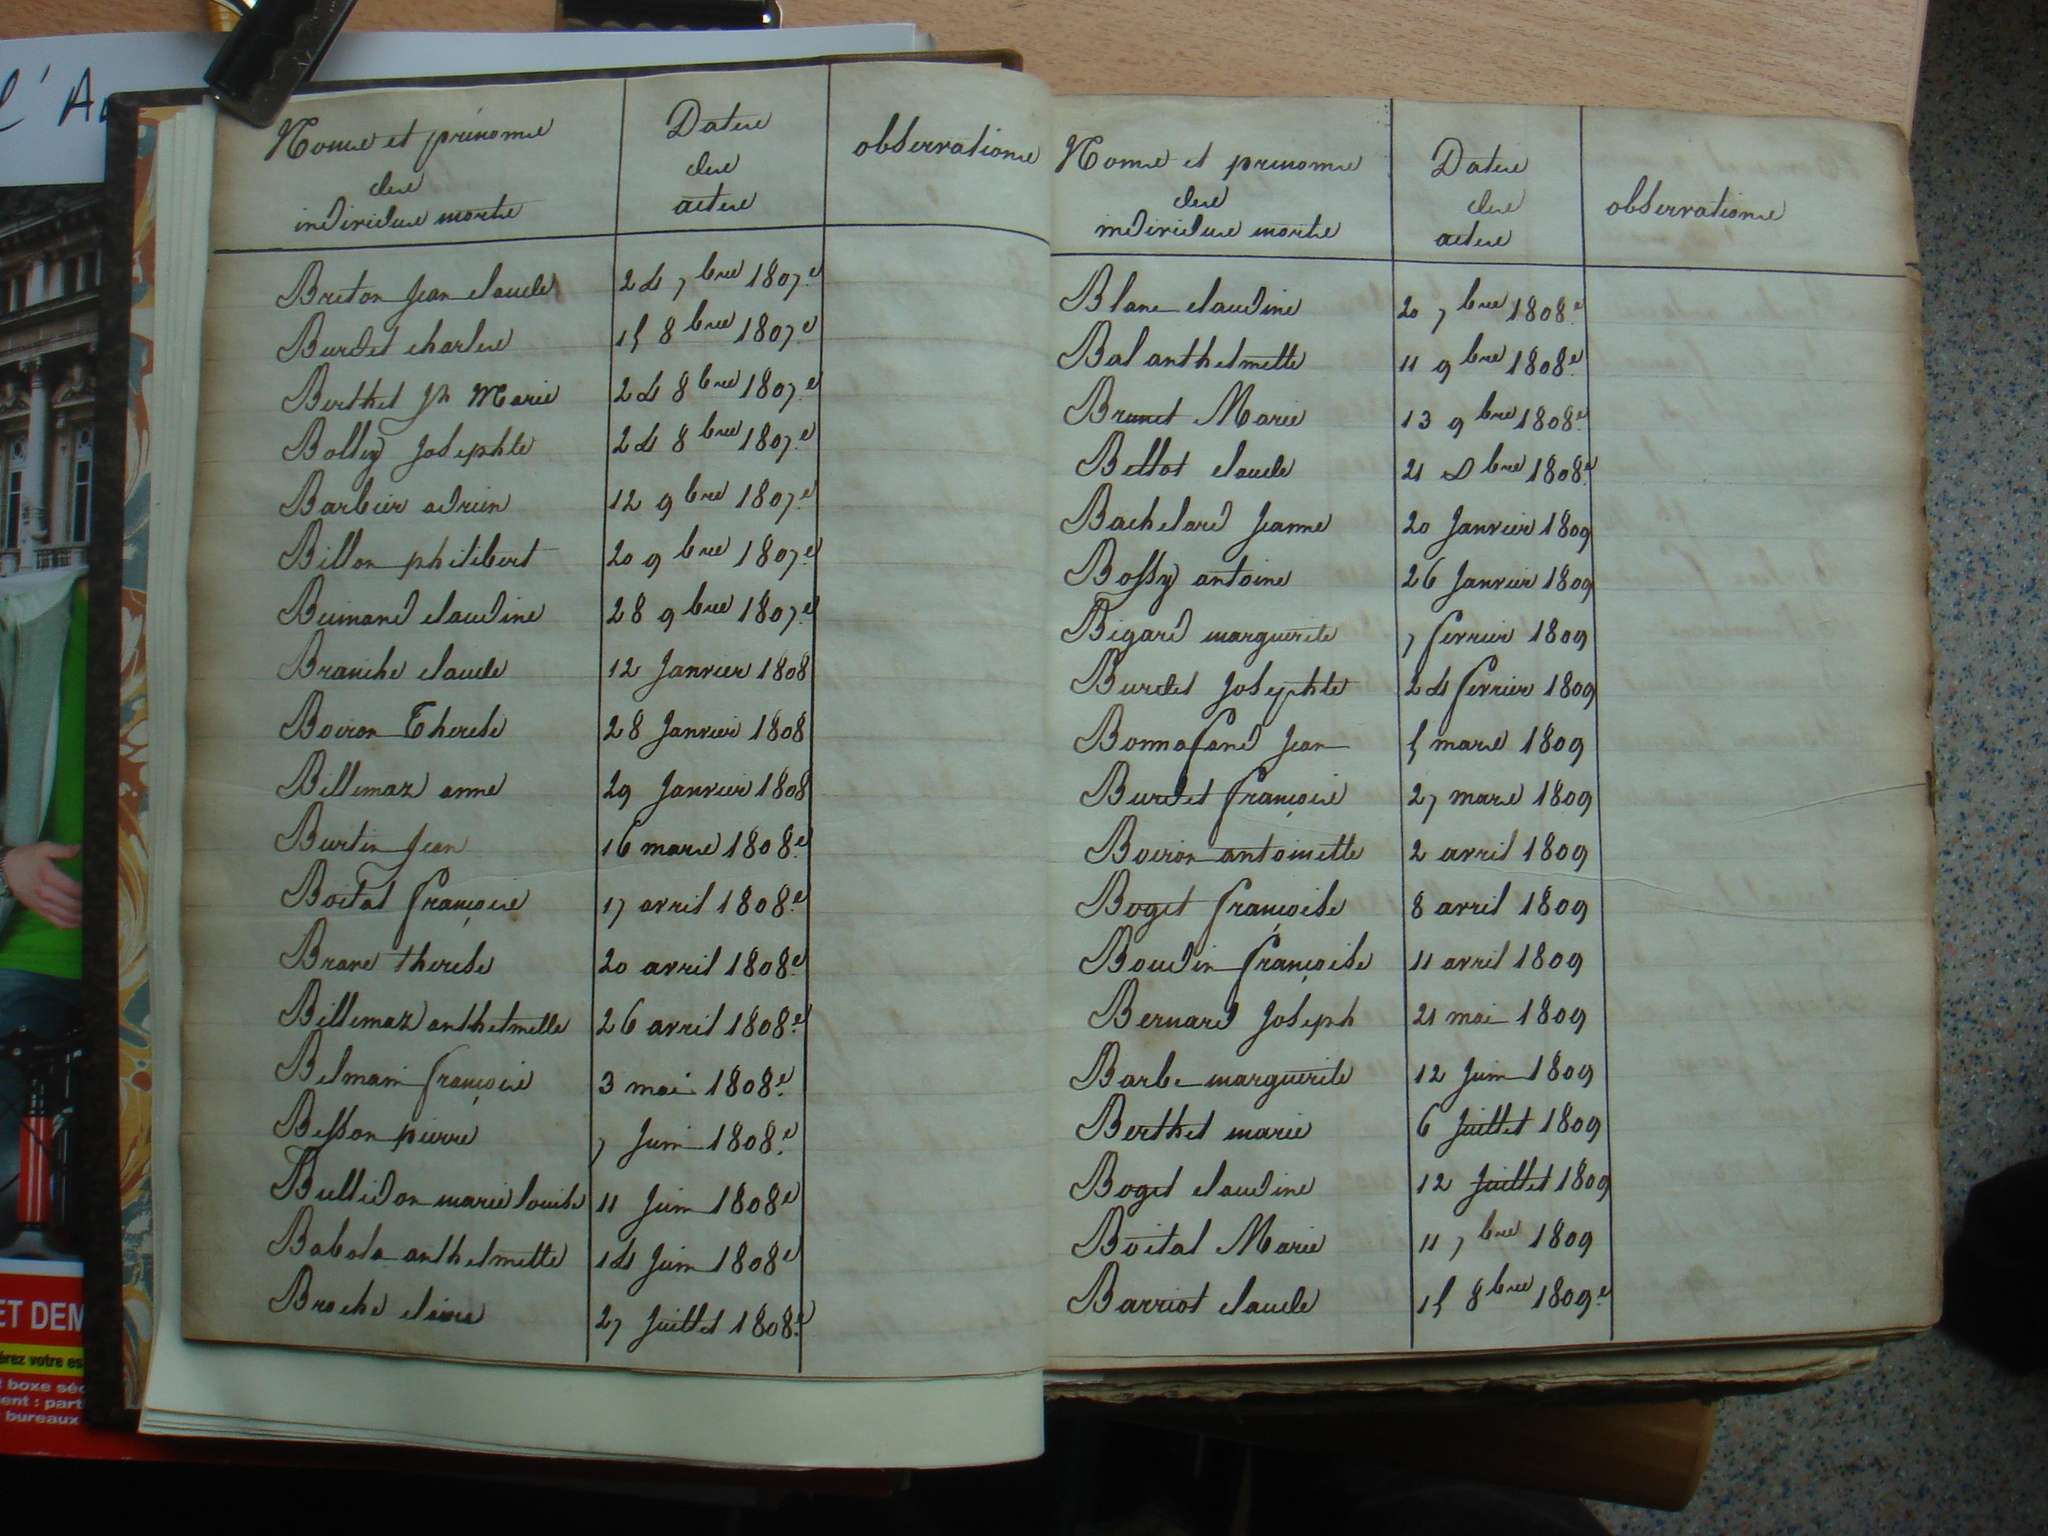 l'A
Noms et prénoms
des
individus morts
Dates
des
actes
observations
Breton Jean claude 24 7bre 1807.
Burdet charles 15 8bre 1807.
Berthet Jh Marie 24 8bre 1807.
Bolley Josephte 24 8bre 1807.
Barbier adrien 12 9bre 1807.
Billon philibert 20 9bre 1807.
claudine 28 9bre 1807.
Branche claude 12 Janvier 1808
Boiron Therese 28 Janvier 1808
Billemaz anne 29 Janvier 1808
Burtin Jean 16 mars 1808.
Boital françois 17 avril 1808.
Brave therese 20 avril 1808.
Billemaz anthelmette 26 avril 1808.
Belmain françois 3 mai 1808.
Besson pierre 7 Juin 1808.
Bullidon marie louise 11 Juin 1808.
Babola anthelmette 14 Juin 1808.
Broche 27 Juillet 1808.
Noms et prenoms
des
individus morts
Dates
des
actes
observations
Blanc claudine 20 7bre 1808.
Bal anthelmette 11 9bre 1808.
Brunet Marie 13 9bre 1808.
Bellot claude 21 Dbre 1808.
Bachelard Jeanne 20 Janvier 1809
Bossy antoine 26 Janvier 1809
Bigard marguerite 7 fevrier 1809
Burdet Josephte 24 fevrier 1809
Bonnafand Jean 5 mars 1809
Burdet françois 27 mars 1809
Boiron antoinette 2 avril 1809
Boget françoise 8 avril 1809
Boudin françoise 11 avril 1809
Bernard Joseph 21 mai 1809
Barbe marguerite 12 Juin 1809
Berthet marie 6 Juillet 1809
Boget claudine 12 Juillet 1809
Boital Marie 11 7bre 1809
Barriot claude 15 8bre 1809.
ET DEM
érez votre es
t boxe séc
ient : part
bureaux